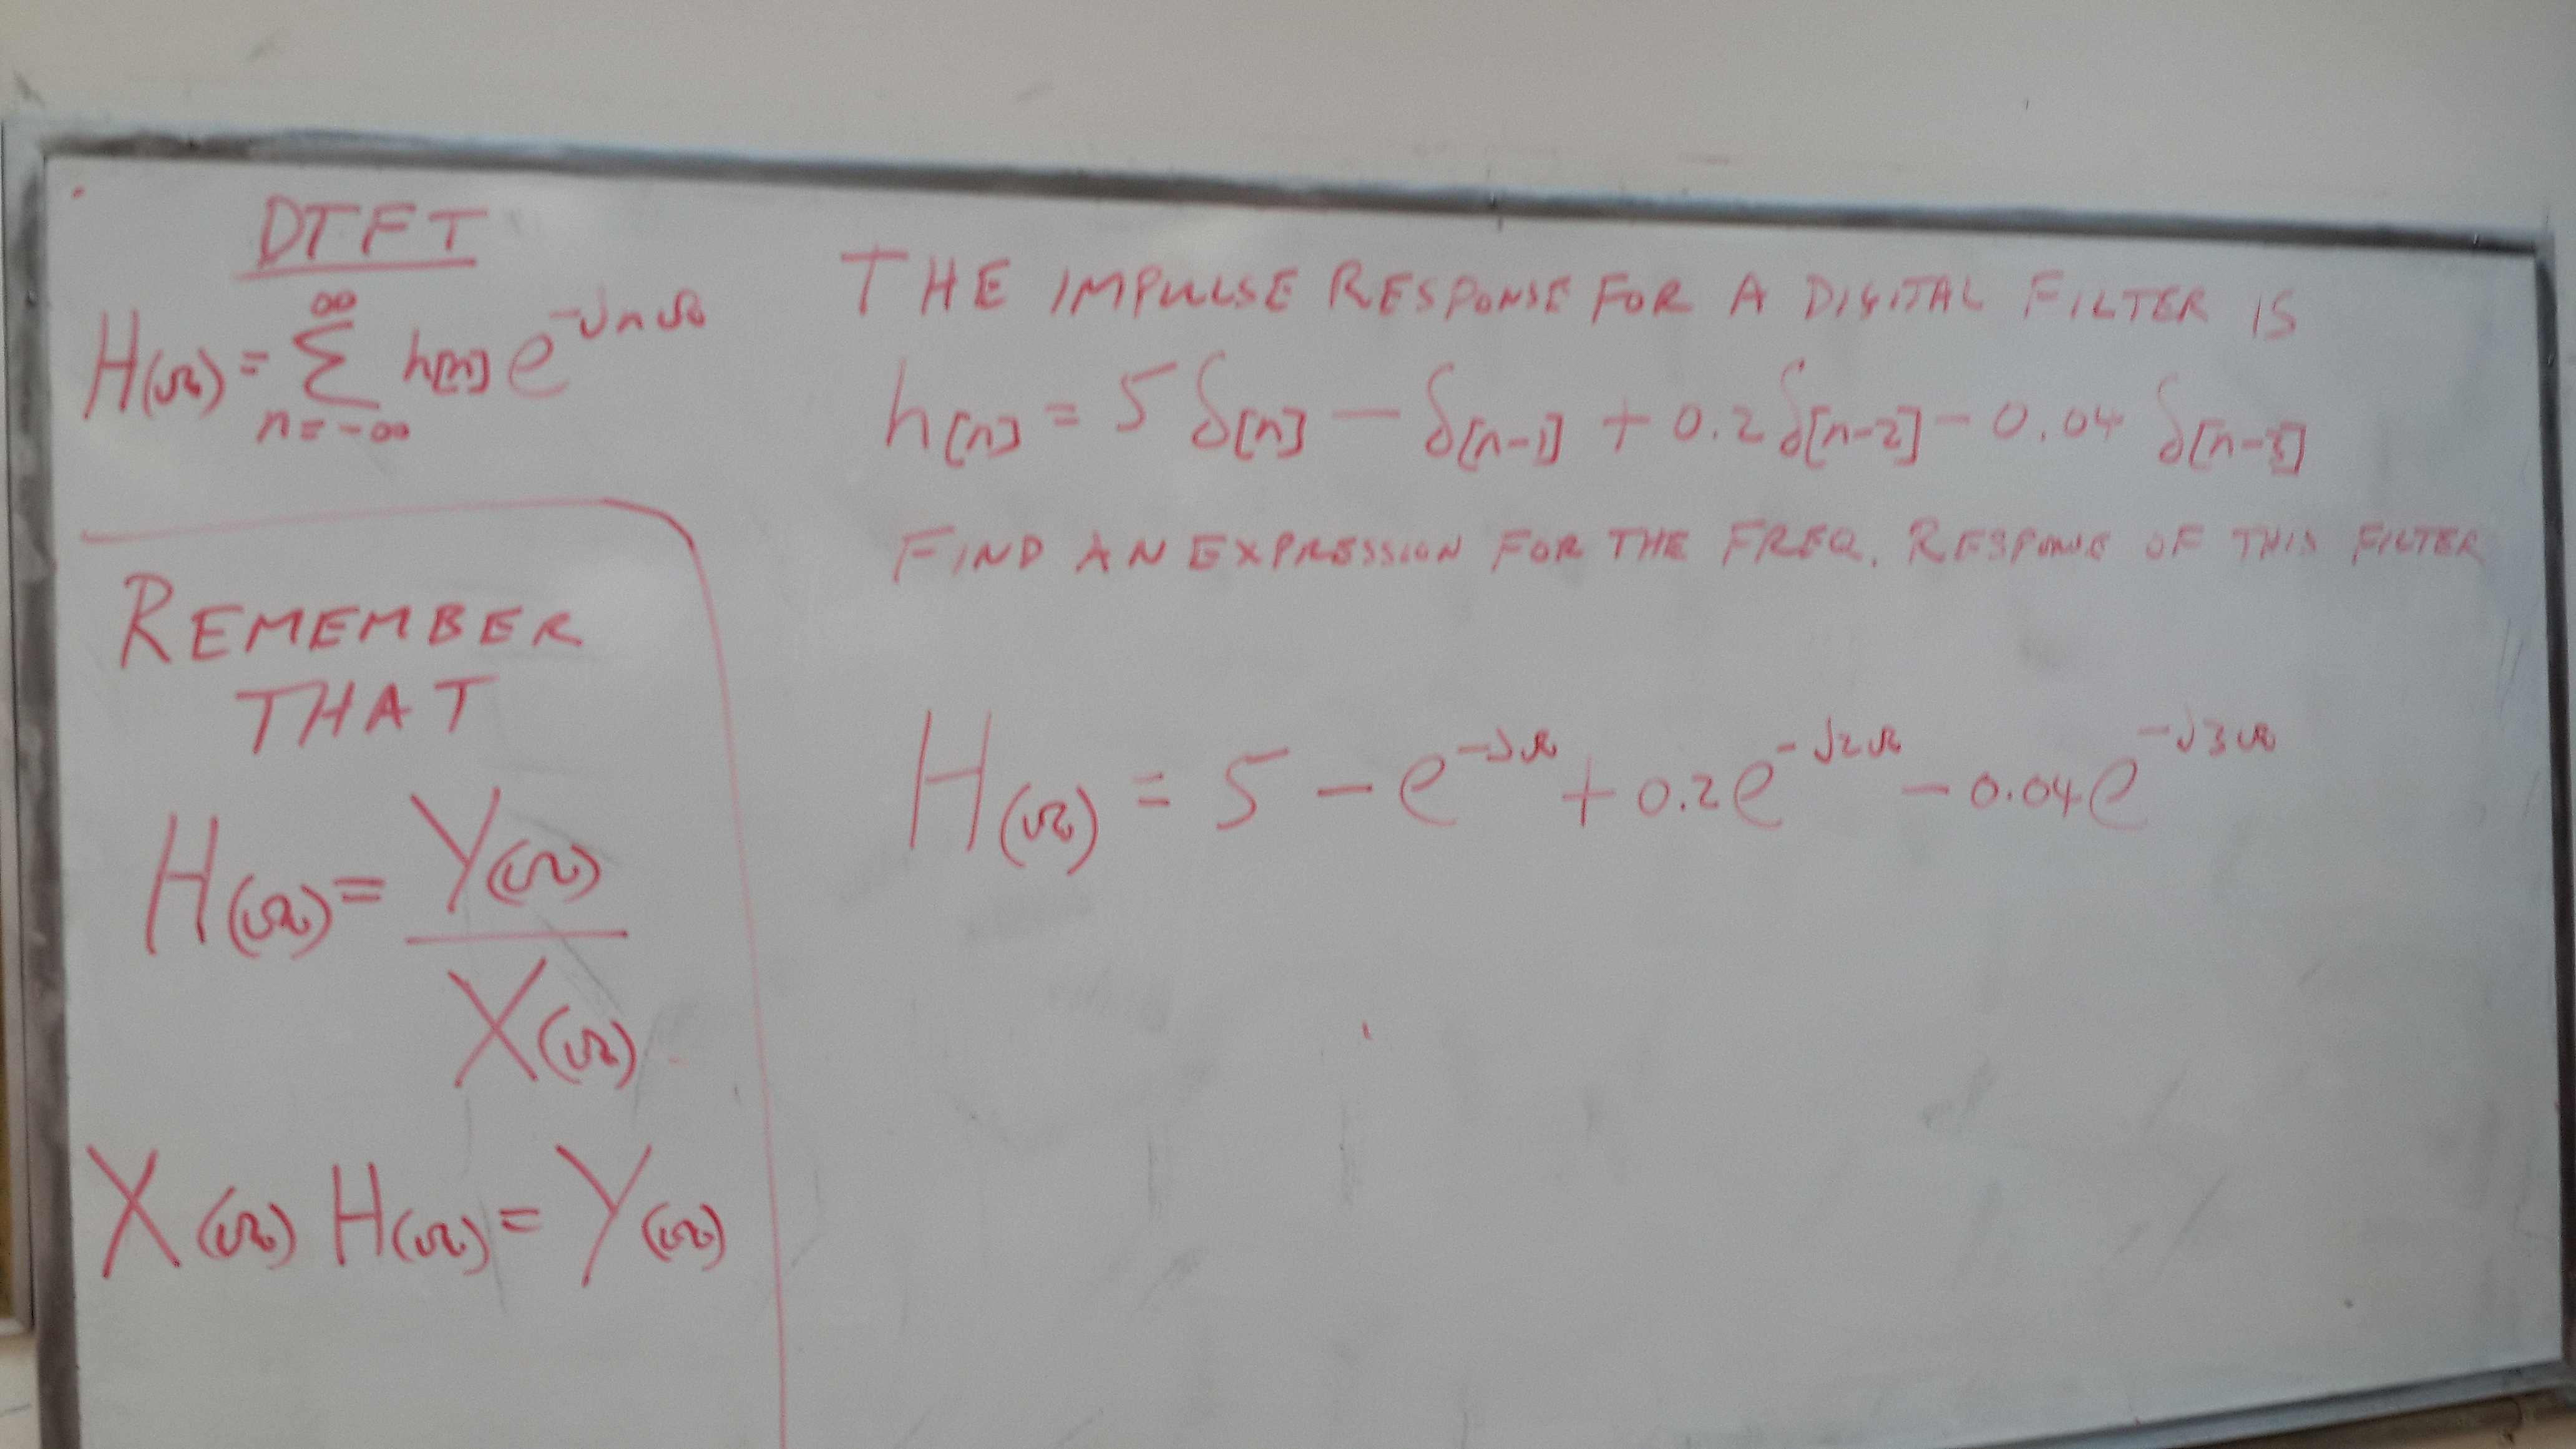 DTFT
H(Ω) = ∞ Σ n=-∞ h[n] e^-jnΩ
REMEMBER
THAT
H(Ω) = Y(Ω)
X(Ω)
X(Ω) H(Ω) = Y(Ω)
THE IMPULSE RESPONSE FOR A DIGITAL FILTER IS
h[n] = 5 δ[n] - δ[n-1] + 0.2 δ[n-2] - 0.04 δ[n-3]
FIND AN EXPRESSION FOR THE FREQ. RESPONSE OF THIS FILTER
H(Ω) = 5 - e^-jΩ + 0.2e^-j2Ω - 0.04e^-j3Ω